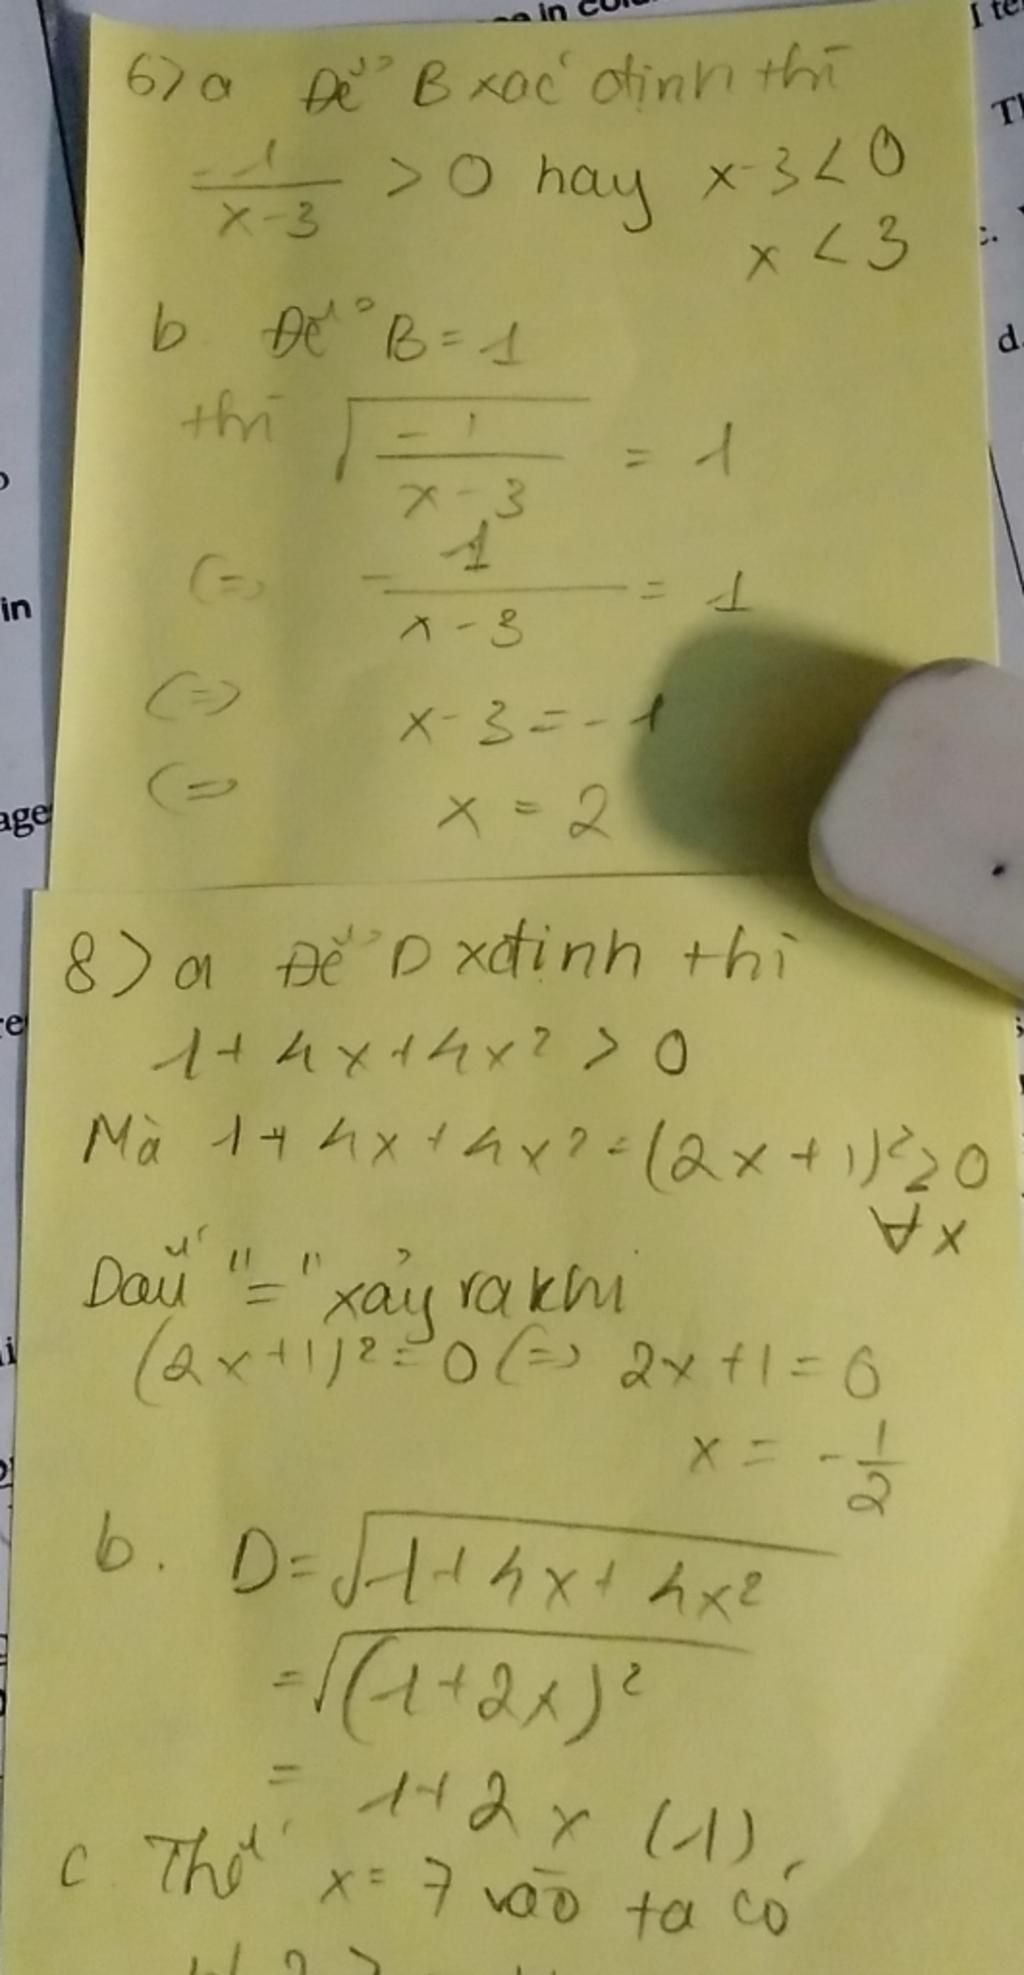 6) a Để B xác định thì
-1/(x-3) > 0 hay x-3 < 0
x < 3
b. Để B = 1
thì √(-1/(x-3)) = 1
(=) -1/(x-3) = 1
(=) x-3 = -1
(=) x = 2
8) a Để D xđịnh thì
1+4x+4x² > 0
Mà 1+4x+4x² = (2x+1)² ≥ 0
∀x
Dấu "=" xảy ra khi
(2x+1)² = 0 (=) 2x+1 = 0
x = -1/2
b. D = √(1+4x+4x²)
= √((1+2x)²)
= 1+2x (1)
c. Thế x = 7 vào ta có
in
age
re
in
I te
Th
c.
d.